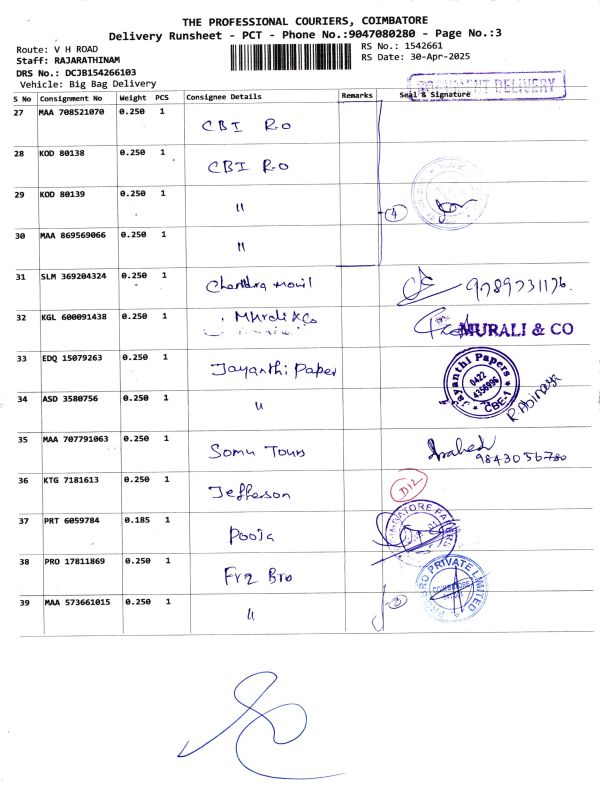 THE PROFESSIONAL COURIERS, COIMBATORE
Delivery Runsheet - PCT - Phone No.:9047080280 - Page No.:3
Route: V H ROAD
RS No.: 1542661
Staff: RAJARATHINAM
RS Date: 30-Apr-2025
DRS No.: DCJB154266103
Vehicle: Big Bag Delivery
DOCUMENT DELIVERY
S No Consignment No Weight PCS Consignee Details Remarks Seal & Signature
27 MAA 708521070 0.250 1 CBI RO
28 KOD 80138 0.250 1 CBI RO
29 KOD 80139 0.250 1 "
4
30 MAA 869569066 0.250 1 "
31 SLM 369204324 0.250 1 Chandra mouil 9789731176.
32 KGL 600091438 0.250 1 Murali & Co MURALI & CO
33 EDQ 15079263 0.250 1 Jayanthi Paper
Jayanthi Papers
0422
4356996
* CBE-1 *
R. Abinaya
34 ASD 3580756 0.250 1 "
35 MAA 707791063 0.250 1 Somu Tours
9843056780
36 KTG 7181613 0.250 1 Jefferson D/L
37 PRT 6059784 0.185 1 Pooja
38 PRO 17811869 0.250 1 Fr2 Bro
PRO BRO PRIVATE LIMITED
COIMBATORE
39 MAA 573661015 0.250 1 "
2